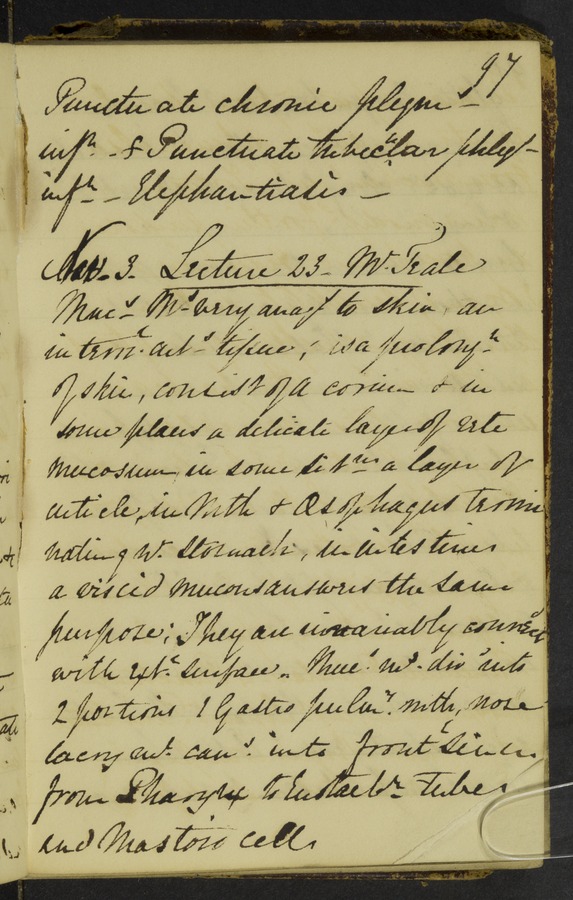 97
Punctuate chronic phlegm -
infn. - & Punctuate tubec'lar phleg -
infn - Elephantiasis -
Nov. 3. Lecture 23 - Mr. Teale
Mucs Ms very anagf to skin, an
interml. tissue; is a prolongn
of skin, consist of a corium & in
some places a delicate layer of rete
mucosum, in some sit a layer of
cuticle, in Mth & Œsophagus termi
nating wt. Stomach, in intestines
a viscid mucous answers the same
purpose; They are invariably connect
with ext. surface. Muc. ms. divd into
2 portions 1 Gastro pulmy. mth, nose
lacryml. cans. into frontl sinus
from Pharynx to Eustachn tubes
and Mastoid cells